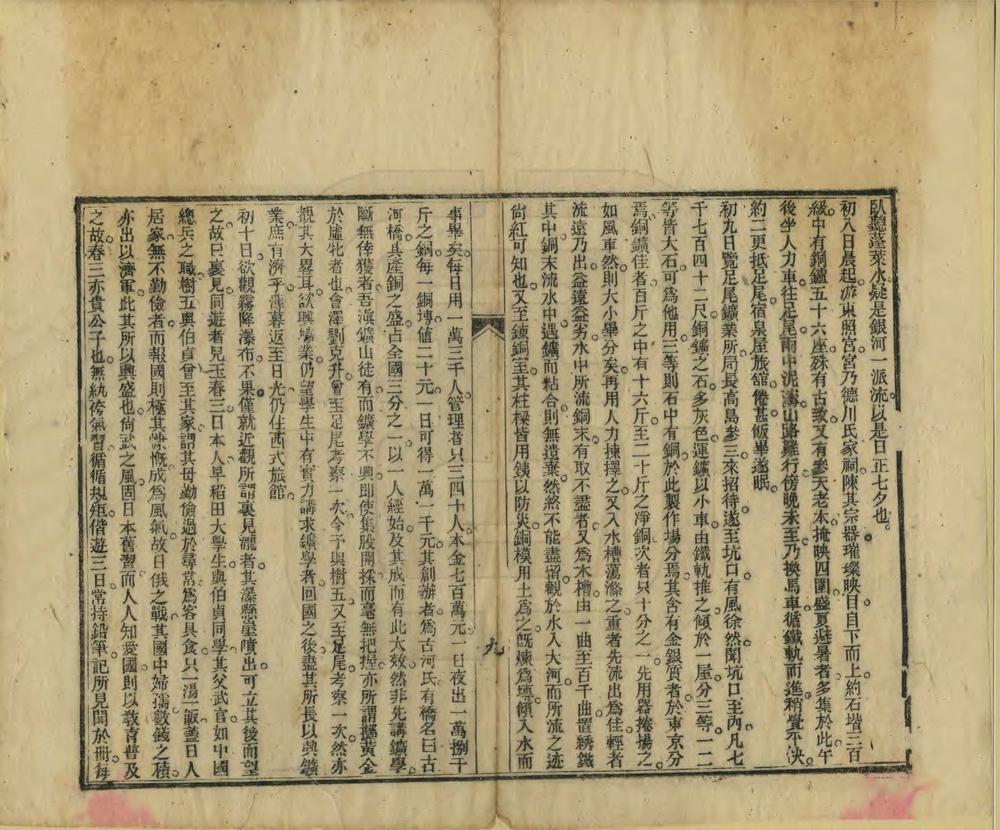 臥聽蓬萊水疑是銀河一派流以是日正七夕也
初八日晨起游東照宮宮乃德川氏家祠陳其宗器璀璨映目自下而上約石堦三百
級中有銅鑪五十六座殊有古致又有參天老木掩映四圍盛夏避暑者多集於此午
後坐人力車往足尾雨中泥濤山路難行傍晚未至乃換馬車循鐵軌而進稍覺平快
約二更抵足尾宿泉屋旅舘倦甚飯畢遂眠
初九日覽足尾鑛業所局長高島參三來招待遂至坑口有風徐然聞坑口至內凡七
千七百四十二尺銅鑛之石多灰色運鑛以小車由鐵軌推之傾於一屋分三等一二
等皆大石可爲他用三等則石中有銅於此製作場分焉其含有金銀質者於東京分
焉銅鑛佳者百斤之中有十六斤至二十斤之淨銅次者只十分之一先用器捲揚之
如風車然則大小畢分矣再用人力揀擇之又入水槽蕩滌之重者先流出爲佳輕者
流遠乃出益遠益劣水中所流銅末有取不盡者又爲木槽由一曲至百千曲置綉鐵
其中銅末流水中遇鐵而粘合則無遺棄然終不能盡留觀於水入大河而所流之迹
尙紅可知也又至鍊銅室其柱樑皆用鐵以防災銅模用土爲之既煉爲塼傾入水而
事畢矣每日用一萬三千人管理者只三四十人本金七百萬元一日夜出一萬捌千
斤之銅每一銅塼値二十元一日可得一萬一千元其創辦者爲古河氏有橋名曰古
河橋其產銅之盛占全國三分之一以一人經始及其成而有此大效然非先講鑛學
斷無倖獲者吾滇鑛山徒有而鑛學不興即使集股開採而毫無把握亦所謂擲黃金
於虛牝者也會澤劉克升曾至足尾考察一次今予與樹五又至足尾考察一次然亦
觀其大畧耳欲興鑛業仍望學生中有實力講求鑛學者回國之後盡其所長以興鑛
業庶有濟乎薄暮返至日光仍住西式旅館
初十日欲觀霧降瀑布不果僅就近觀所謂裏見瀧者其瀑懸崖噴出可立其後而望
之故曰裏見同遊者兒玉春三日本人早稻田大學生與伯貞同學其父武官如中國
總兵之職樹五與伯貞曾至其家謂其母勤儉過於尋常爲客具食只一湯一飯蓋日人
居家無不勤儉者而報國則極其慷慨成爲風氣故日俄之戰其國中婦孺數錢之積
亦出以濟軍此其所以興盛也尙武之風固日本舊習而人人知愛國則以敎育普及
之故春三亦貴公子也無紈袴氣習循循規矩偕遊三日常持鉛筆記所見聞於冊每
九